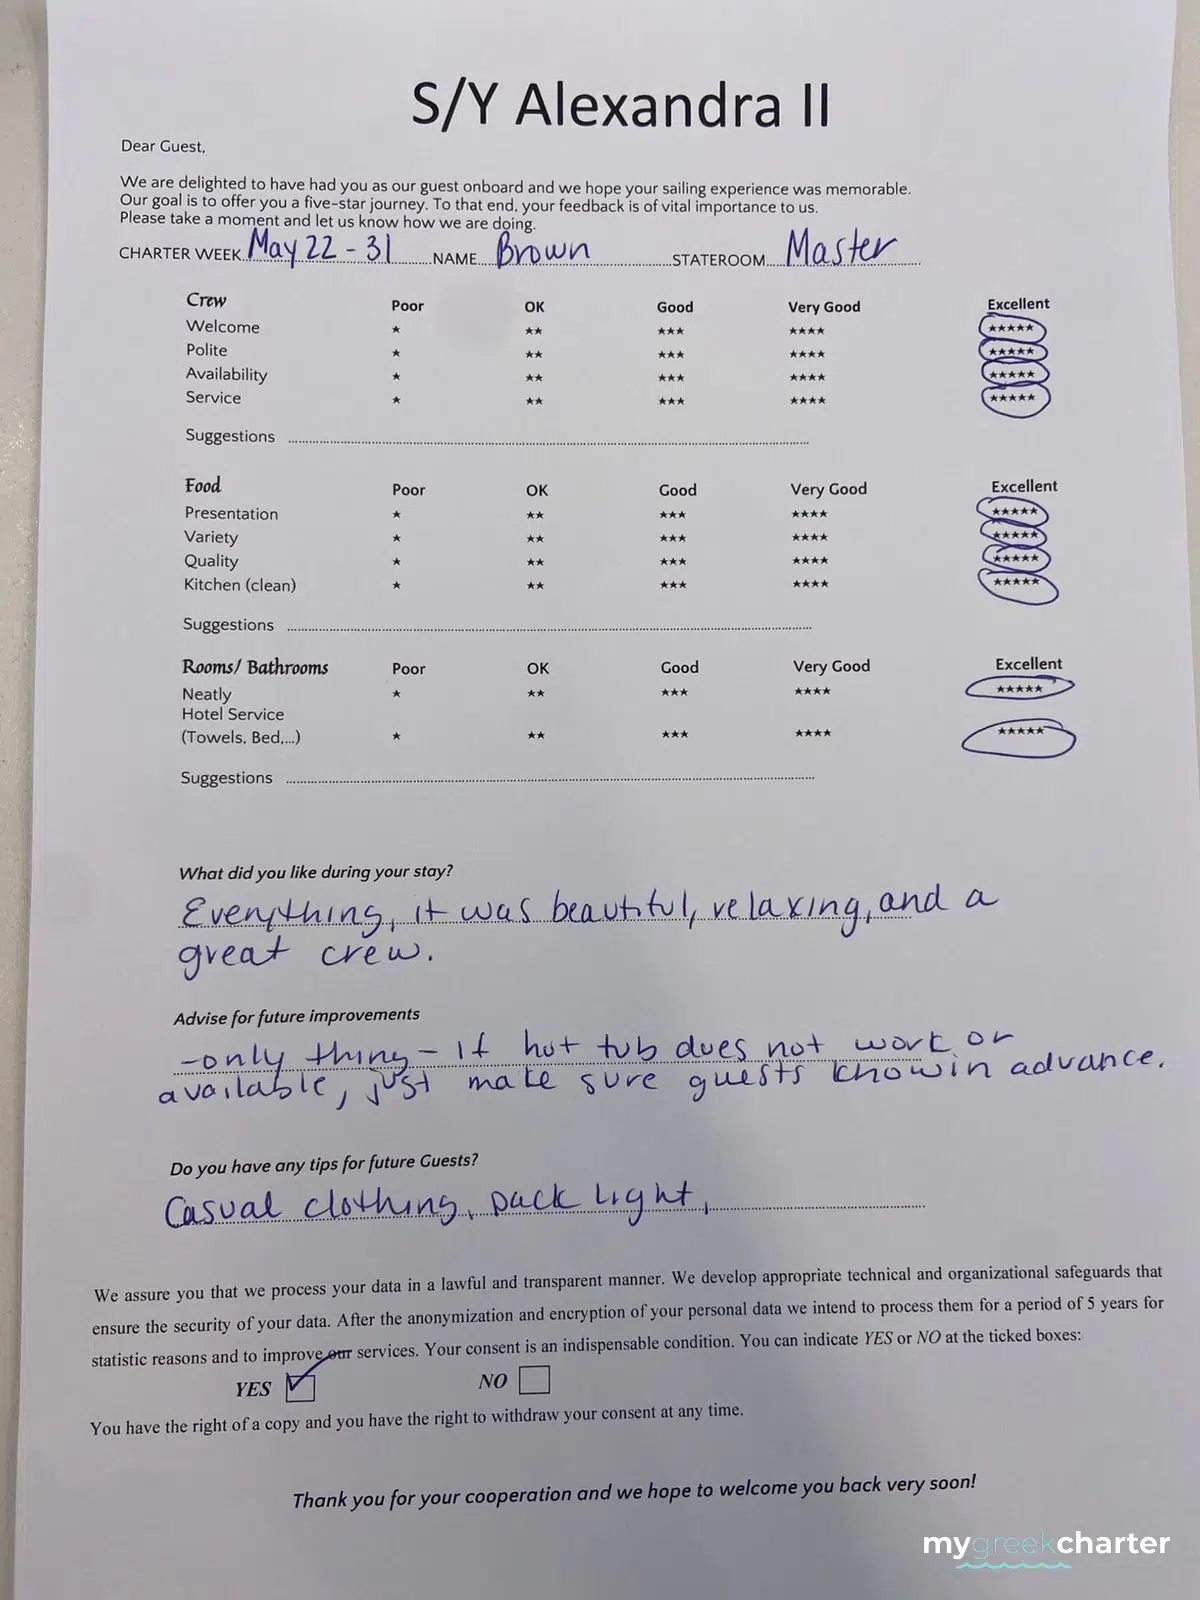 S/Y Alexandra II
Dear Guest,
We are delighted to have had you as our guest onboard and we hope your sailing experience was memorable.
Our goal is to offer you a five-star journey. To that end, your feedback is of vital importance to us.
Please take a moment and let us know how we are doing.
CHARTER WEEK May 22 - 31 NAME Brown STATEROOM Master
Crew Poor OK Good Very Good Excellent
Welcome ★ ★★ ★★★ ★★★★ ★★★★★
Polite ★ ★★ ★★★ ★★★★ ★★★★★
Availability ★ ★★ ★★★ ★★★★ ★★★★★
Service ★ ★★ ★★★ ★★★★ ★★★★★
Suggestions
Food Poor OK Good Very Good Excellent
Presentation ★ ★★ ★★★ ★★★★ ★★★★★
Variety ★ ★★ ★★★ ★★★★ ★★★★★
Quality ★ ★★ ★★★ ★★★★ ★★★★★
Kitchen (clean) ★ ★★ ★★★ ★★★★ ★★★★★
Suggestions
Rooms/ Bathrooms Poor OK Good Very Good Excellent
Neatly ★ ★★ ★★★ ★★★★ ★★★★★
Hotel Service
(Towels, Bed,...) ★ ★★ ★★★ ★★★★ ★★★★★
Suggestions
What did you like during your stay?
Everything, it was beautiful, relaxing, and a
great crew.
Advise for future improvements
- only thing - if hot tub does not work or
available, just make sure guests know in advance.
Do you have any tips for future Guests?
Casual clothing, pack light,
We assure you that we process your data in a lawful and transparent manner. We develop appropriate technical and organizational safeguards that
ensure the security of your data. After the anonymization and encryption of your personal data we intend to process them for a period of 5 years for
statistic reasons and to improve our services. Your consent is an indispensable condition. You can indicate YES or NO at the ticked boxes:
YES NO
You have the right of a copy and you have the right to withdraw your consent at any time.
Thank you for your cooperation and we hope to welcome you back very soon!
mygreekcharter